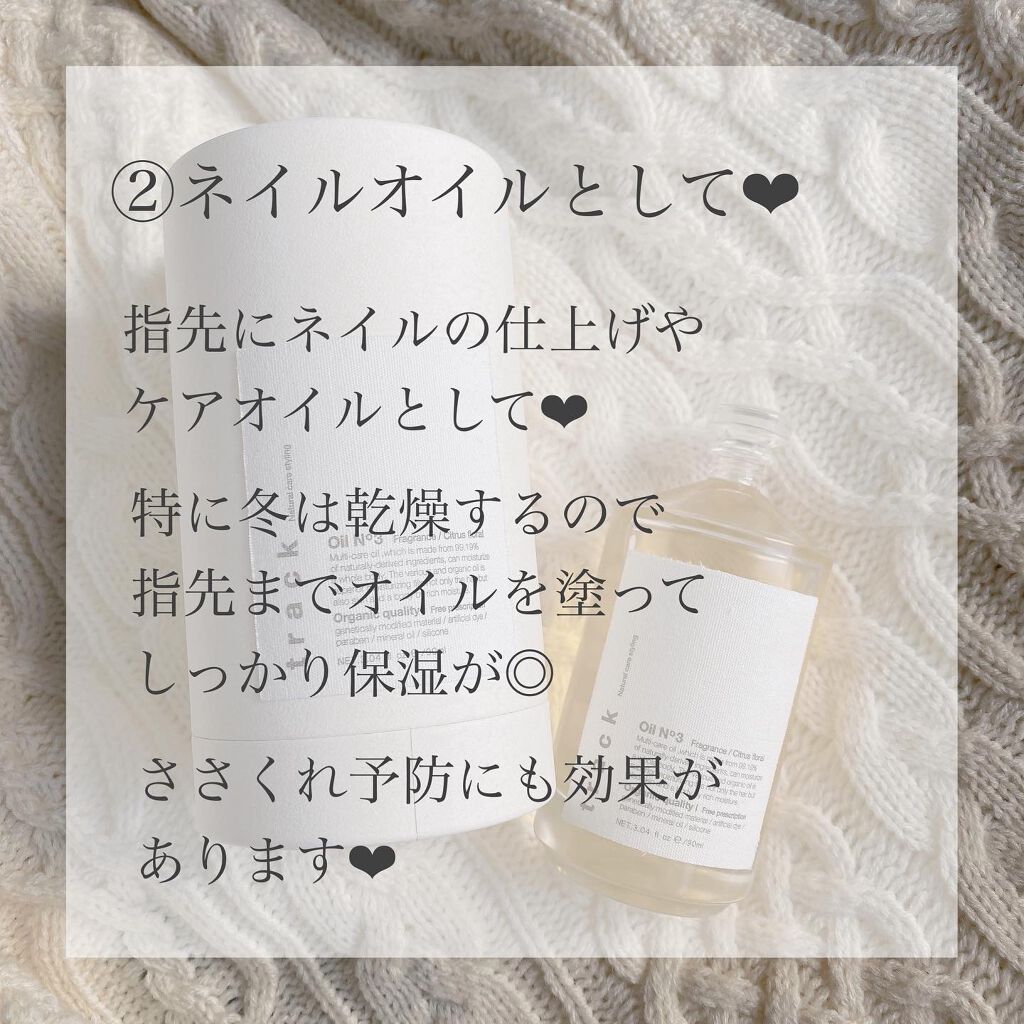 ②ネイルオイルとして❤
指先にネイルの仕上げや
ケアオイルとして❤
特に冬は乾燥するので
指先までオイルを塗って
しっかり保湿が◎
ささくれ予防にも効果が
あります❤
track
Natural care styling
Oil Nº3 Fragrance / Citrus floral
Multi-care oil ,which is made from 99.19%
of naturally-derived ingredients, can moisturize
Organic quality / Free prescription
genetically modified material / artificial dye /
paraben / mineral oil / silicone
Natural care styling
Oil Nº3 Fragrance / Citrus floral
Multi-care oil ,which is made from 99.19%
of naturally-derived ingredients, can moisturize
quality / Free prescription
genetically modified material / artificial dye /
paraben / mineral oil / silicone
NET.3.04 fl oz ℮ /90ml